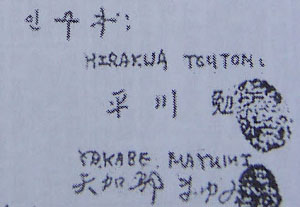 인수자:
HIRAKWA TSUTOMU
平川 勉
YAKABE MAYUMI
矢加部 まゆみ